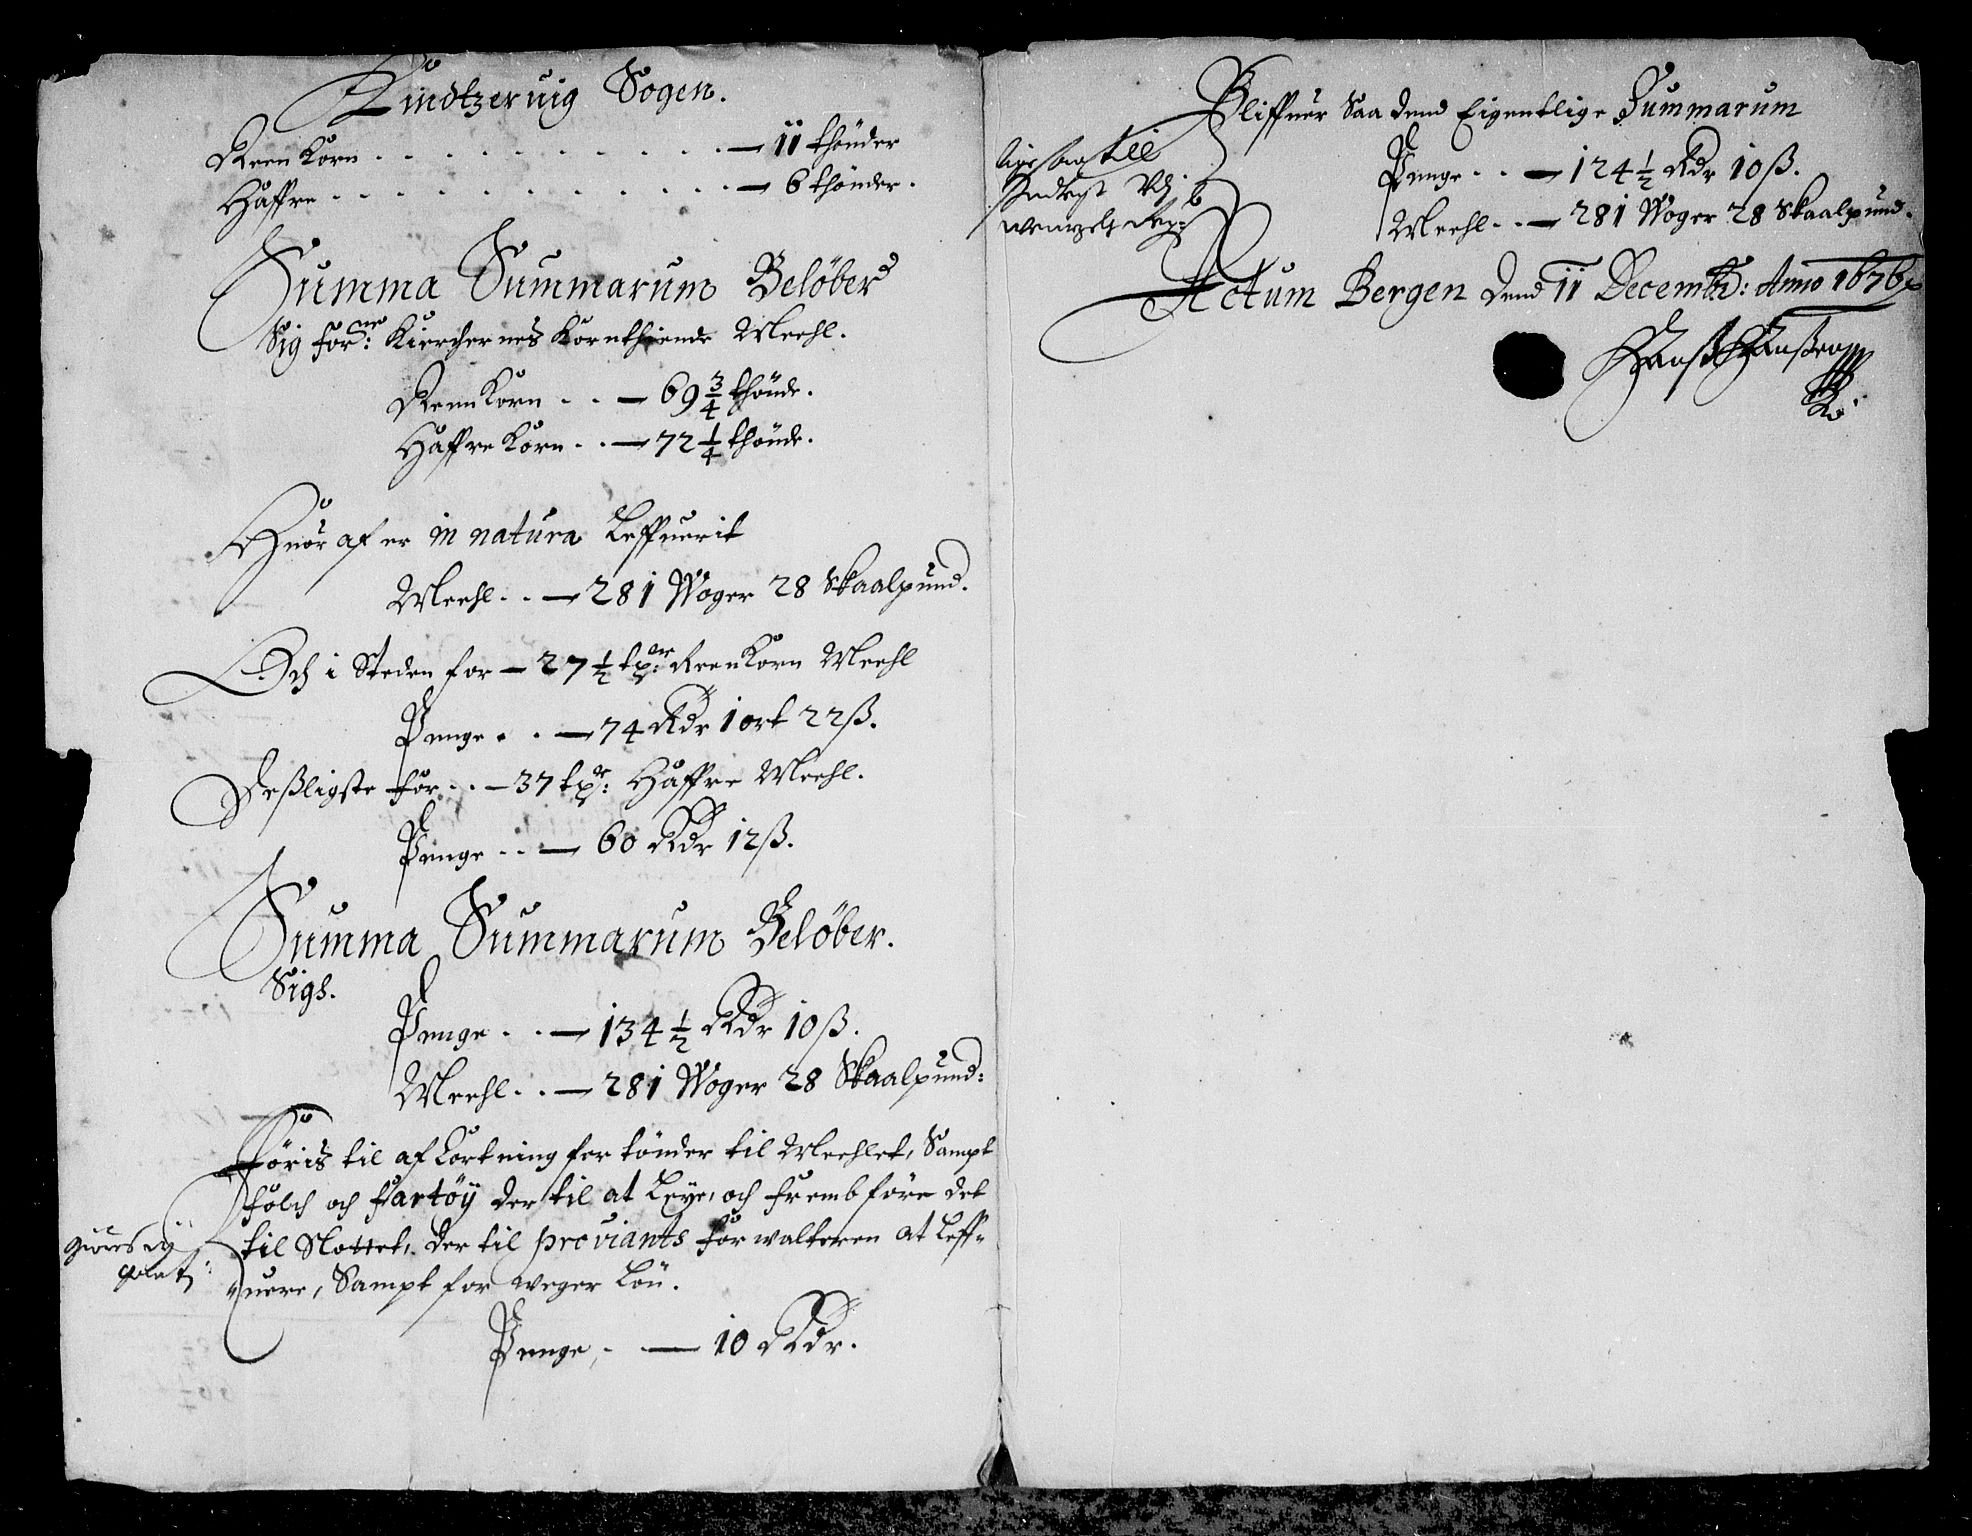 Kindtzeruig Sogen.
Reen Korn . . . . . . . . . . — 11 thönder
Haffre . . . . . . . . . . . — 6 thönder.
Summa Summarum Beløber
Sig for:ne Kierchernes Kornthiende Meehl.
Reen Korn . . — 69 3/4 thönde.
Haffre Korn . . — 72 1/4 thönde.
Huor af er in natura Leffuerit
Meehl . . — 281 Woger 28 Skaalpund.
Och i Steden for — 27 1/2 tp:er Reen Korn Meehl
Penge . . — 74 Rdr 1 ort 22 ß.
Deßligste for . . — 37 tp:er Haffre Meehl.
Penge . . — 60 Rdr 12 ß.
Summa Summarum Beløber.
Sigs.
Penge . . — 134 1/2 Rdr 10 ß.
Meehl . . — 281 Woger 28 Skaalpund:
Föris til af Kortning for tönder til Meehlet, Sampt
folch och Fartöy der til at Leye, och frembföre det
til Slottet, der til proviants forwalteren at Leff-
uere, Sampt for weger Lön.
Penge . — 10 Rdr.
Bliffuer Saa dend Eigentlige Summarum
Penge . . — 124 1/2 Rdr 10 ß.
Meehl . . — 281 Woger 28 Skaalpund.
till
Actum Bergen dend 11 Decemb: Anno 1676
Hanß Hanßen